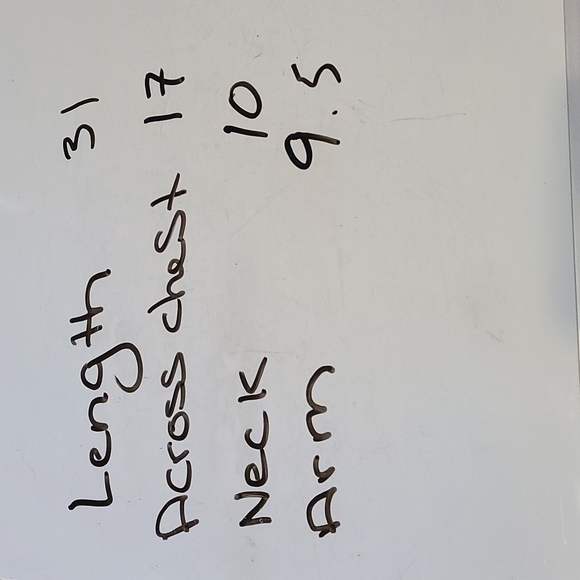 Length 31
Across chest 17
Neck 10
Arm 9.5